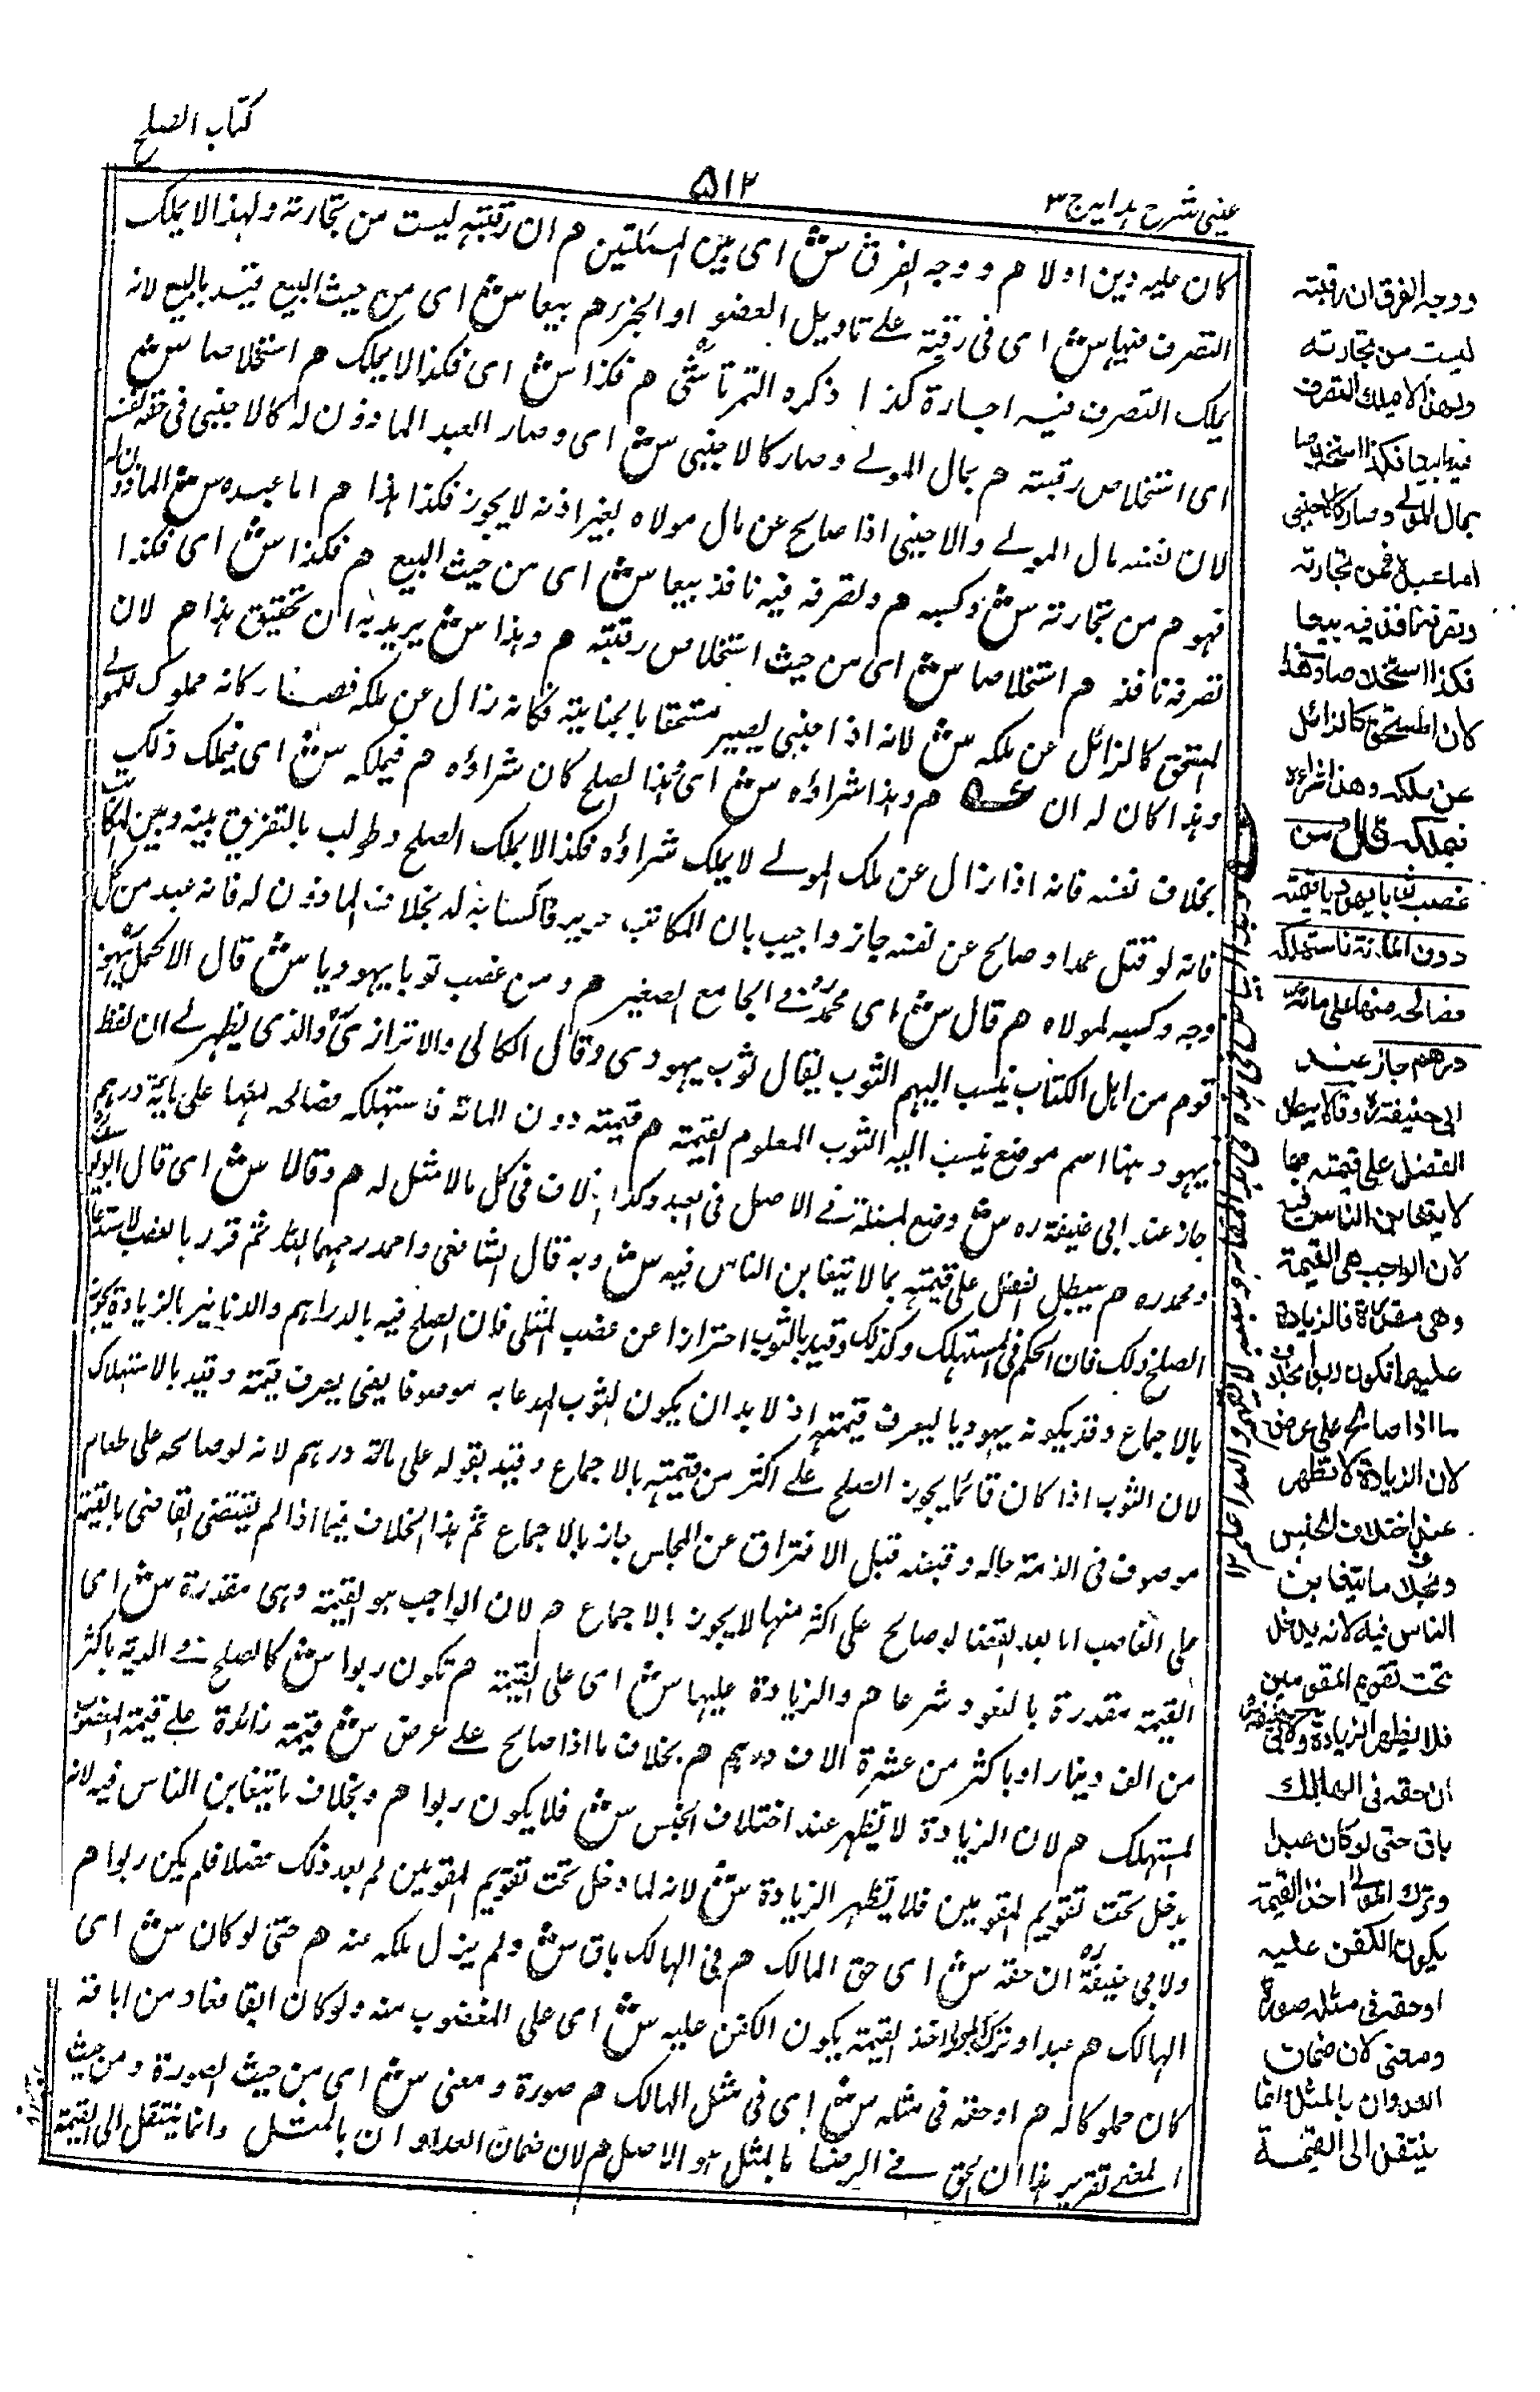 كتاب الصلح
٥١٢
عینی شرح ہدایہ ج ٣
كان عليه دين اولا هم ووجه الفرق ش اى بين المسئلتين هم ان رقبته ليست من تجارته ولهذا لا يملك
التصرف فيها ش اى فى رقبته على تاويل العضو او الجزء هم بيعا ش اى من حيث البيع قيد بالبيع لانه
يملك التصرف فيه اجارة كذا ذكره التمرتاشى هم فكذا ش اى فكذا لا يملك هم استخلاصا ش
اى استخلاص رقبته هم بمال المولى وصار كالاجنبى ش اى وصار العبد الماذون له كالاجنبى فى حق نفسه
لان نفسه مال المولى والاجنبى اذا صالح عن مال مولاه بغير اذنه لا يجوز فكذا هذا هم اما عبده ش الماذون له
فهو هم من تجارته ش وكسبه هم وتصرفه فيه نافذ بيعا ش اى من حيث البيع هم فكذا ش اى فكذا
تصرفه نافذ هم استخلاصا ش اى من حيث استخلاص رقبته هم وهذا ش يريد به ان تحقيق هذا هم لان
المستحق كالزائل عن ملكه ش لانه اذا جنى يصير مستحقا بالجناية فكانه زال عن ملكه فصار كانه مملوك للمولى
وهذا كان له ان هم وهذا شراؤه ش اى هذا الصلح كان شراؤه هم فيملكه ش اى فيملك ذلك
بخلاف نفسه فانه اذا زال عن ملك المولى لا يملك شراؤه فكذا لا يملك الصلح وطولب بالتفريق بينه وبين المكاتب
فانه لو قتل عمدا وصالح عن نفسه جاز واجيب بان المكاتب حر يد فاكتسابه له بخلاف الماذون له فانه عبد من كل
وجه وكسبه لمولاه هم قال ش اى محمد فى الجامع الصغير هم ومن غصب ثوبا يهوديا ش قال الاكمل يهود
قوم من اهل الكتاب ينسب اليهم الثوب يقال ثوب يهودى وقال الكاكى والاترازى والذى يظهر لى ان لفظ
يهود هنا اسم موضع ينسب اليه الثوب المعلوم القيمة هم قيمته دون المائة فاستهلكه فصالحه منها على مائة درهم
جاز عند ابى حنيفة ره ش وضع المسئلة فى الاصل فى العبد وكذا الخلاف فى كل مالا مثل له هم وقالا ش اى قال ابو يوسف
ومحمد ره هم يبطل الفضل على قيمته بما لا يتغابن الناس فيه ش وبه قال الشافعى واحمد رحمهما الله ثم قرر بالغصب لاستدعا
الصلح ذلك فان الحكم فى المستهلك وكذلك وقيد بالثوب احترازا عن غصب المثلى فان الصلح فيه بالدراهم والدنانير بالزيادة يجوز
بالاجماع وقد بكونه يهوديا ليعرف قيمته اذ لا بد ان يكون الثوب المدعا به موصوفا يعنى يعرف قيمته وقيد بالاستهلاك
لان الثوب اذا كان قائما يجوز الصلح على اكثر من قيمته بالاجماع وقيد بقوله على مائة درهم لانه لو صالحه على طعام
موصوف فى الذمة حاله وقبضه قبل الافتراق عن المجلس جاز بالاجماع ثم هذا الخلاف فيما اذا لم يقتضى القاضى بالقيمة
على الغاصب اما بعد القضا لو صالح على اكثر منها لا يجوز بالاجماع هم لان الواجب هو القيمة وهى مقدرة ش اى
القيمة مقدرة بالنقود شرعا هم والزيادة عليها ش اى على القيمة هم تكون ربوا ش كالصلح فى الدية باكثر
من الف دينار او باكثر من عشرة الاف درهم هم بخلاف ما اذا صالح على عرض ش قيمته زائدة على قيمة المغصوب
المستهلك هم لان الزيادة لا تظهر عند اختلاف الجنس ش فلا يكون ربوا هم وبخلاف ما يتغابن الناس فيه لانه
يدخل تحت تقويم المقومين فلا تظهر الزيادة ش لانه لما دخل تحت تقويم المقومين لم يعد ذلك فضلا فلم يكن ربوا هم
ولابى حنيفة ره ان حقه ش اى حق المالك هم فى الهالك باق ش ولم يزل ملكه عنه هم حتى لو كان ش اى
الهالك هم عبدا وترك المولى اخذ القيمة يكون الكفن عليه ش اى على المغصوب منه ولو كان ابقا فعاد من اباقه
كان مملوكا له هم او حقه فى مثله ش اى فى مثل الهالك هم صورة ومعنى ش اى من حيث الصورة ومن حيث
المعنى تقرير هذا ان الحق فى الرضا بالمثل هو الاصل هم لان ضمان العداوان بالمثل وانما ينتقل الى القيمة
ووجه الفرق ان رقبته
ليست من تجارته
ولهذا لا يملك التصرف
فيها بيعا فكذا استخلاصا
بمال المولى وصار كالاجنبى
اما عبده فمن تجارته
وتصرفه نافذ فيه بيعا
فكذا استخلاصا وهذا
لان المستحق كالزائل
عن ملكه وهذا شراءه
فيملكه قال ومن
غصب ثوبا يهوديا قيمته
دون المائة فاستهلكه
فصالحه منها على مائة
درهم جاز عند
ابى حنيفة ره وقالا يبطل
الفضل على قيمته بما
لا يتغابن الناس فيه
لان الواجب هى القيمة
وهى مقدرة فالزيادة
عليها تكون ربوا بخلاف
ما اذا صالح على عرض
لان الزيادة لا تظهر
عند اختلاف الجنس
وبخلاف ما يتغابن
الناس فيه لانه يدخل
تحت تقويم المقومين
فلا تظهر الزيادة ولابى حنيفة
ان حقه فى الهالك
باق حتى لو كان عبدا
وترك المولى اخذ القيمة
يكون الكفن عليه
او حقه فى مثله صورة
ومعنى لان ضمان
العدوان بالمثل وانما
ينتقل الى القيمة